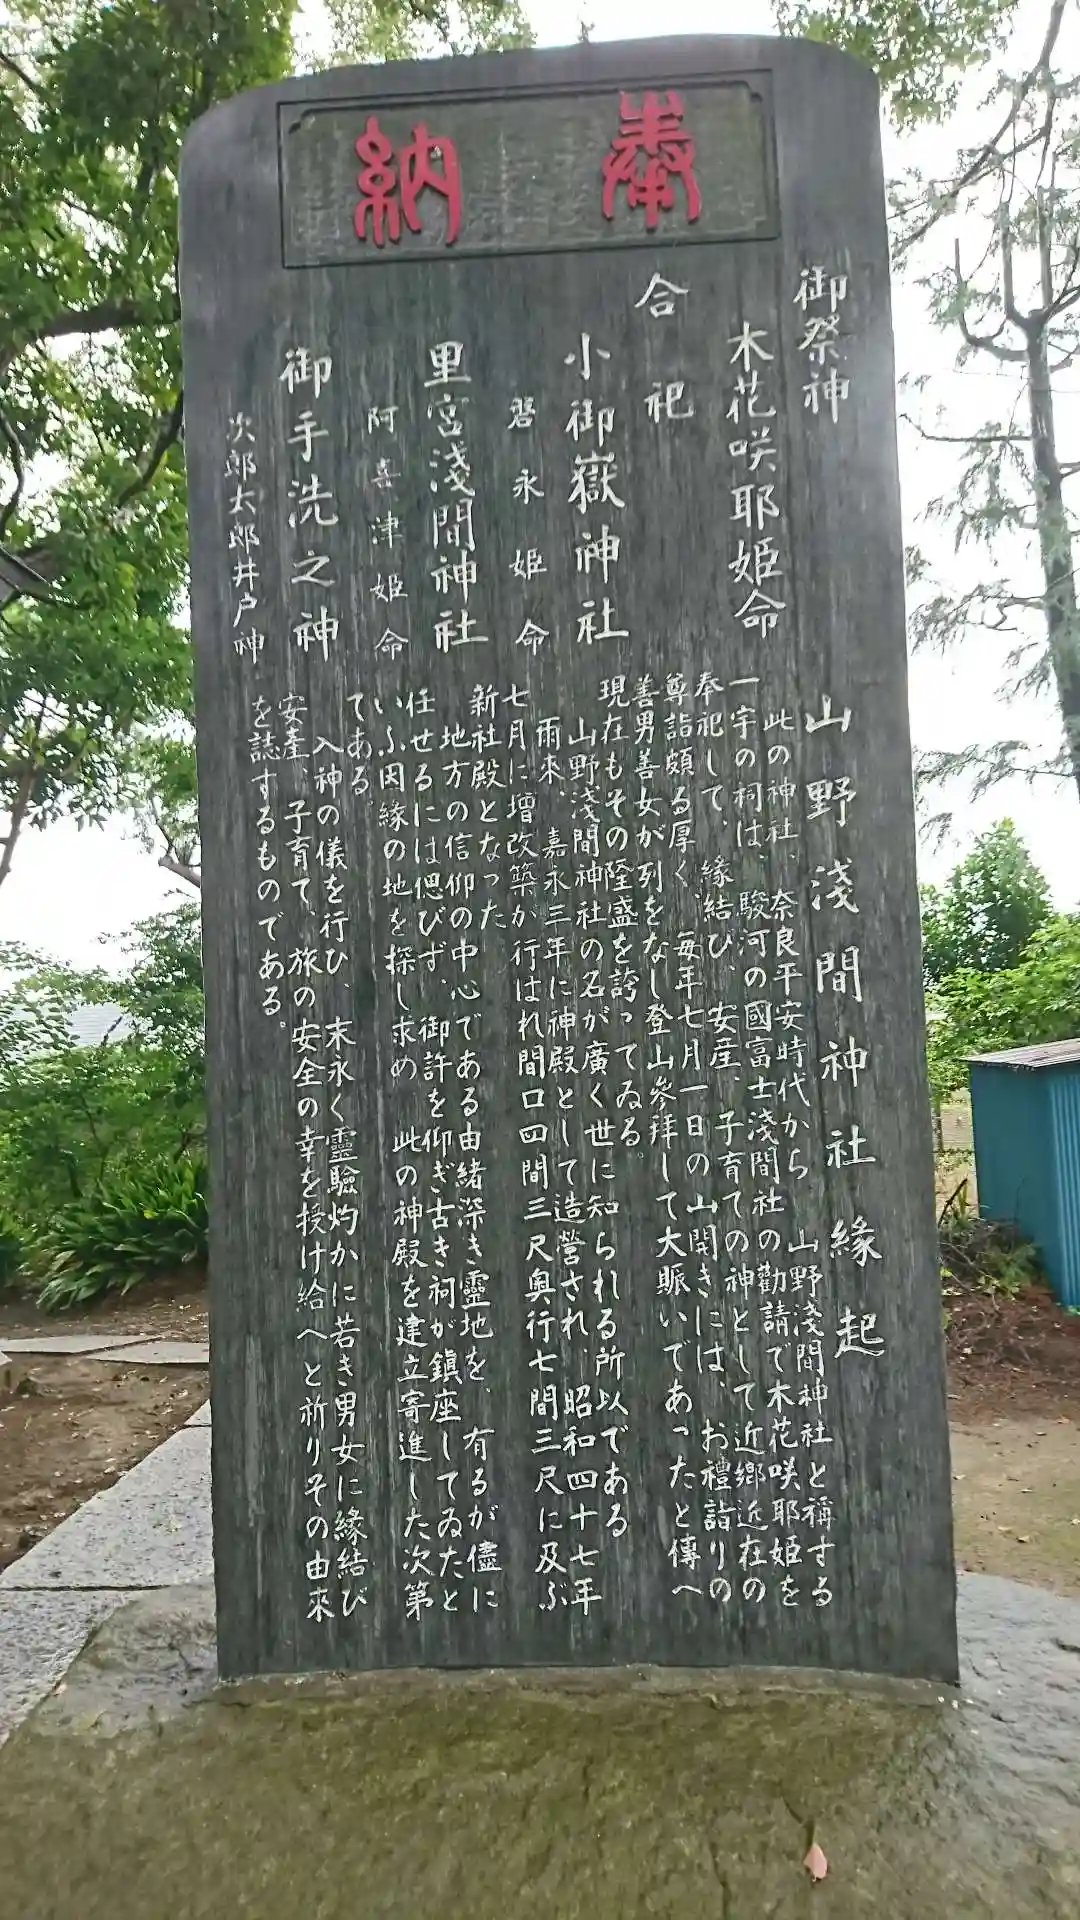 奉納
御祭神
木花咲耶姫命
合祀
小御嶽神社
磐永姫命
里宮淺間神社
阿喜津姫命
御手洗之神
次郎太郎井戸神
山野淺間神社緣起
此の神社、奈良平安時代から山野淺間神社と稱する
一宇の祠は、駿河の國富士淺間社の勸請で木花咲耶姫を
奉祀して、緣結び、安産、子育ての神として近鄕近在の
尊詣頗る厚く、毎年七月一日の山開きには、お禮詣りの
善男善女が列をなし登山參拜して大賑いであったと傳へ
現在もその隆盛を誇ってゐる。
山野淺間神社の名が廣く世に知られる所以である
雨來、嘉永三年に神殿として造營され、昭和四十七年
七月に增改築が行はれ間口四間三尺奥行七間三尺に及ぶ
新社殿となった
地方の信仰の中心である由緒深き靈地を、有るが儘に
任せるには偲びず、御許を仰ぎ古き祠が鎭座してゐたと
いふ因緣の地を探し求め、此の神殿を建立寄進した次第
てある。
入神の儀を行ひ、末永く靈驗灼かに若き男女に緣結び
安産、子育て、旅の安全の幸を授け給へと祈りその由來
を誌するものである。